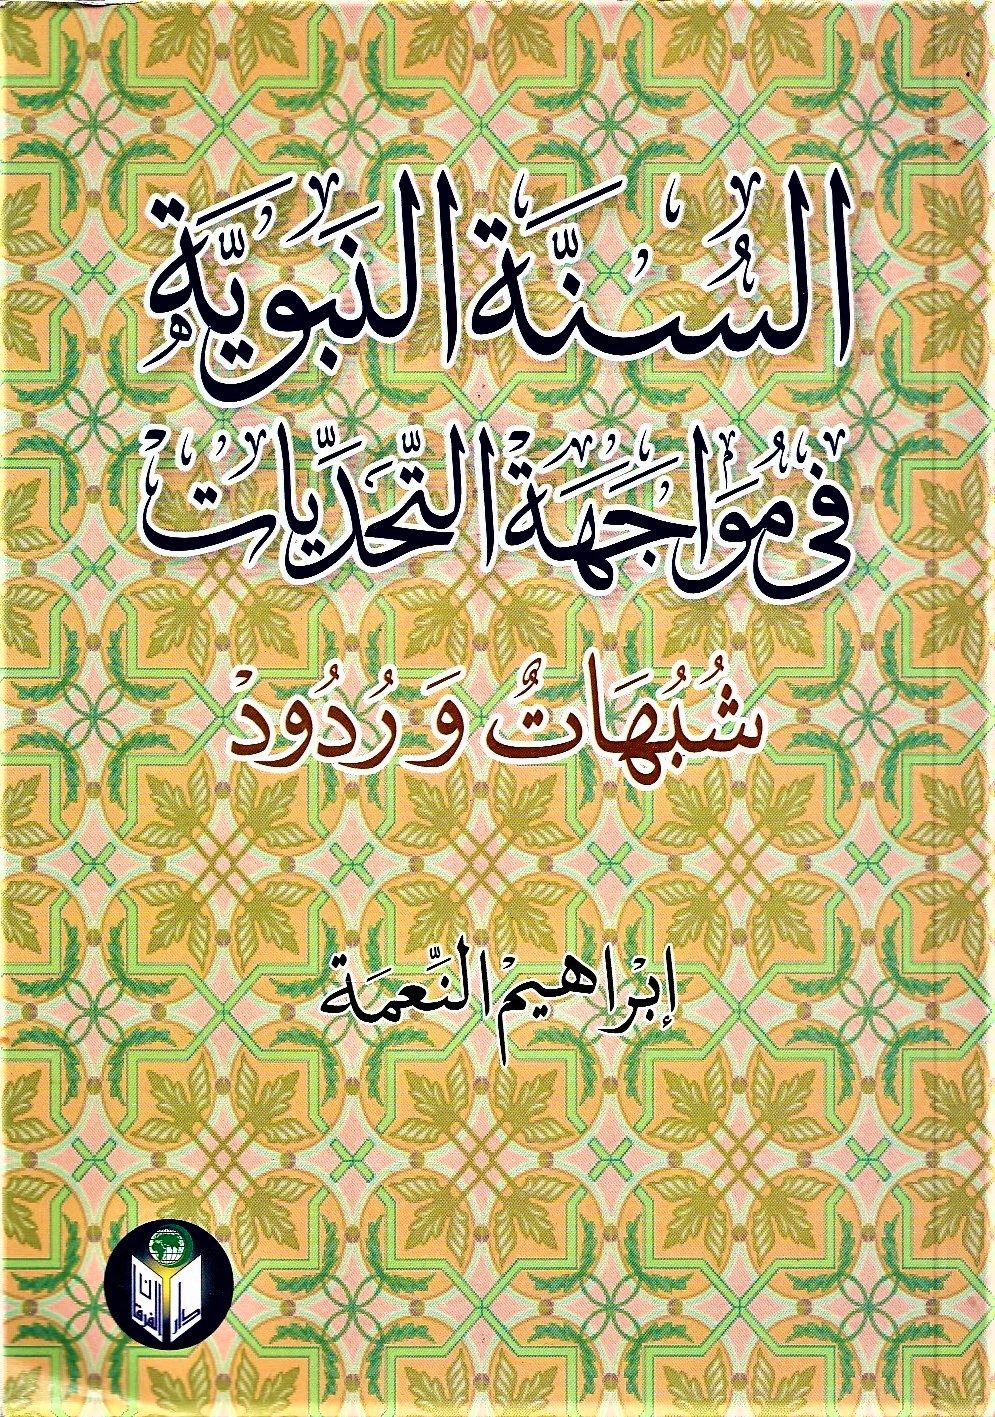 السُنَّة النَبَويَّة
في مُوَاجَهَة التَّحَدِّيات
شُبُهَاتٌ وَرُدُودْ
إبْرَاهيمْ النَّعمَة
دار الفرقان